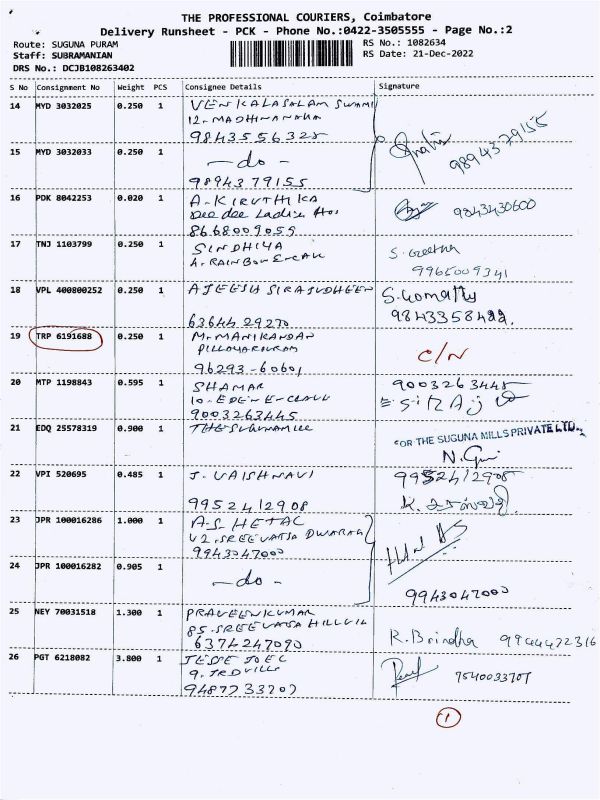 THE PROFESSIONAL COURIERS, Coimbatore
Delivery Runsheet - PCK - Phone No.:0422-3505555 - Page No.:2
Route: SUGUNA PURAM
RS No.: 1082634
Staff: SUBRAMANIAN
RS Date: 21-Dec-2022
DRS No.: DCJB108263402
S No Consignment No Weight PCS Consignee Details Signature
14 MYD 3032025 0.250 1 VENKALASALAM SWAMI
12-
9843556325
15 MYD 3032033 0.250 1 -do-
9894379155 9894379155
16 PDK 8042253 0.020 1 A-KIRUTHIKA
Dee dee Ladies Hos 9843430600
8668009055
17 TNJ 1103799 0.250 1 SINDHIYA S. Geetha
9965009341
18 VPL 400800252 0.250 1 AJEESH SIRAJUDHEEN S. Gomathy
6364429270 9843358422.
19 TRP 6191688 0.250 1 M-MANIKANDAN
C/N
96293-60601
20 MTP 1198843 0.595 1 SHAMAR 9003263445
10-EDEN ENCLAVE SIRAJ
9003263445
21 EDQ 25578319 0.900 1 THE SUGUNA MILL FOR THE SUGUNA MILLS PRIVATE LTD.,
22 VPI 520695 0.485 1 J. VAISHNAVI 9952412908
9952412908
23 JPR 100016286 1.000 1 A-S-HETAL
V2. SREEVATSA DWARAKA
9943047000
24 JPR 100016282 0.905 1 -do-
9943047000
25 NEY 70031518 1.300 1 PRAVEENKUMAR
85. SREEVATSA HILLVIL R. Brindha 9944472316
6374247090
26 PGT 6218082 3.800 1 JESSE JOEL
9. 7540033707
9487733707
1